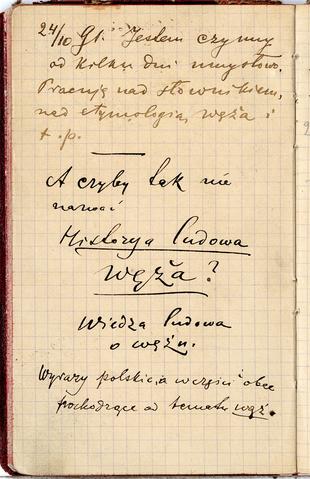 24/10 91. Jestem czynny
od kilku dni umysłowo.
Pracuję nad słownikiem,
nad etymologią, węża i
t.p.
A czyby tak nie
nazwać
Historya ludowa
węża?
Wiedza ludowa
o wężu.
Wyrazy polskie, a w części obce
pochodzące od tematu wąż.